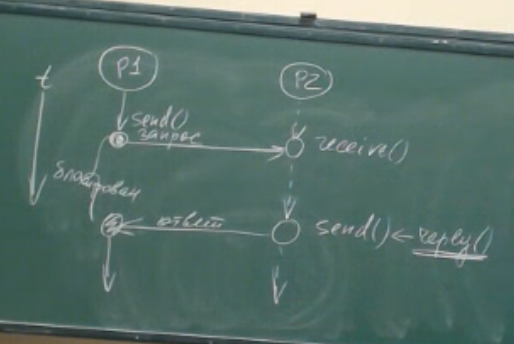 t
P1
P2
send()
запрос
receive()
блокирован
ответ
send() ← reply()